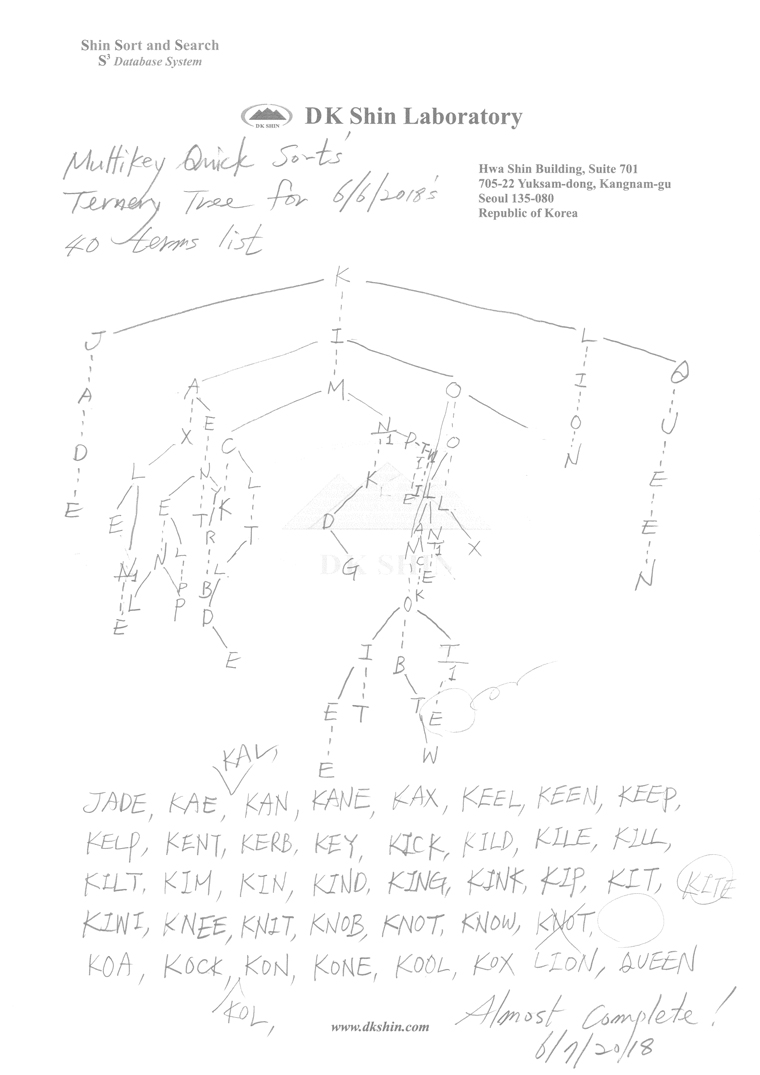 Shin Sort and Search
S³ Database System
DK SHIN
DK Shin Laboratory
Multikey Quick Sort's
Ternery Tree for 6/6/2018's
40 terms list
Hwa Shin Building, Suite 701
705-22 Yuksam-dong, Kangnam-gu
Seoul 135-080
Republic of Korea
K
J I L Q
A A M O I U
X E C N/1 P O O
D L N K L K N E
E E E Y T D L X E
DK SHIN
G N
O
I B T/1
E T T E
E W
KAL,
JADE, KAE, KAN, KANE, KAX, KEEL, KEEN, KEEP,
KELP, KENT, KERB, KEY, KICK, KILD, KILE, KILL,
KILT, KIM, KIN, KIND, KING, KINK, KIP, KIT, KITE
KIWI, KNEE, KNIT, KNOB, KNOT, KNOW, KNOT,
KOA, KOCK, KON, KONE, KOOL, KOX LION, QUEEN
KOL,
www.dkshin.com
Almost Complete!
6/7/2018